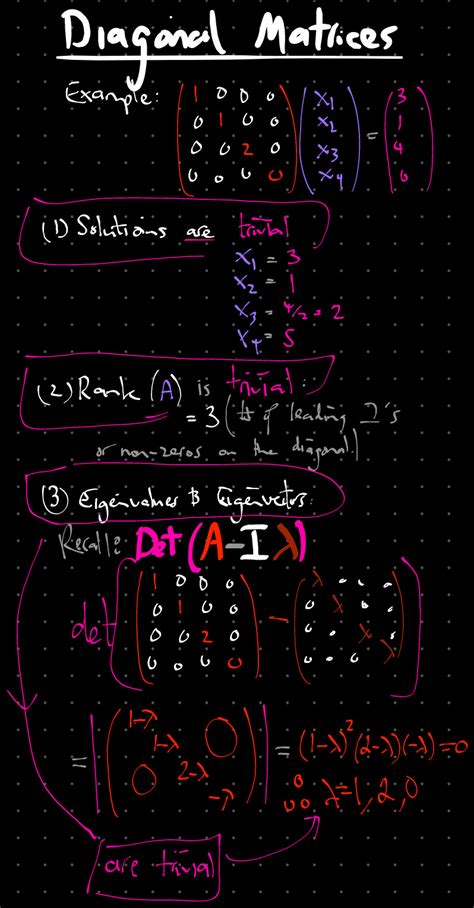 Diagonal Matrices
Example: (1 0 0 0 / 0 1 0 0 / 0 0 2 0 / 0 0 0 0) (x1 / x2 / x3 / x4) = (3 / 1 / 4 / 0)
(1) Solutions are trivial
x1 = 3
x2 = 1
x3 = 4/2 = 2
x4 = S
(2) Rank (A) is trivial:
= 3 (# of leading 1's
or non-zeros on the diagonal)
(3) Eigenvalues & Eigenvectors:
Recall: Det (A-Iλ)
det ( (1 0 0 0 / 0 1 0 0 / 0 0 2 0 / 0 0 0 0) - (λ 0 0 0 / 0 λ 0 0 / 0 0 λ 0 / 0 0 0 λ) )
= |(1-λ 1-λ 2-λ -λ 0 0)| = (1-λ)²(2-λ)(-λ)=0
∴ λ=1,2,0
are trivial